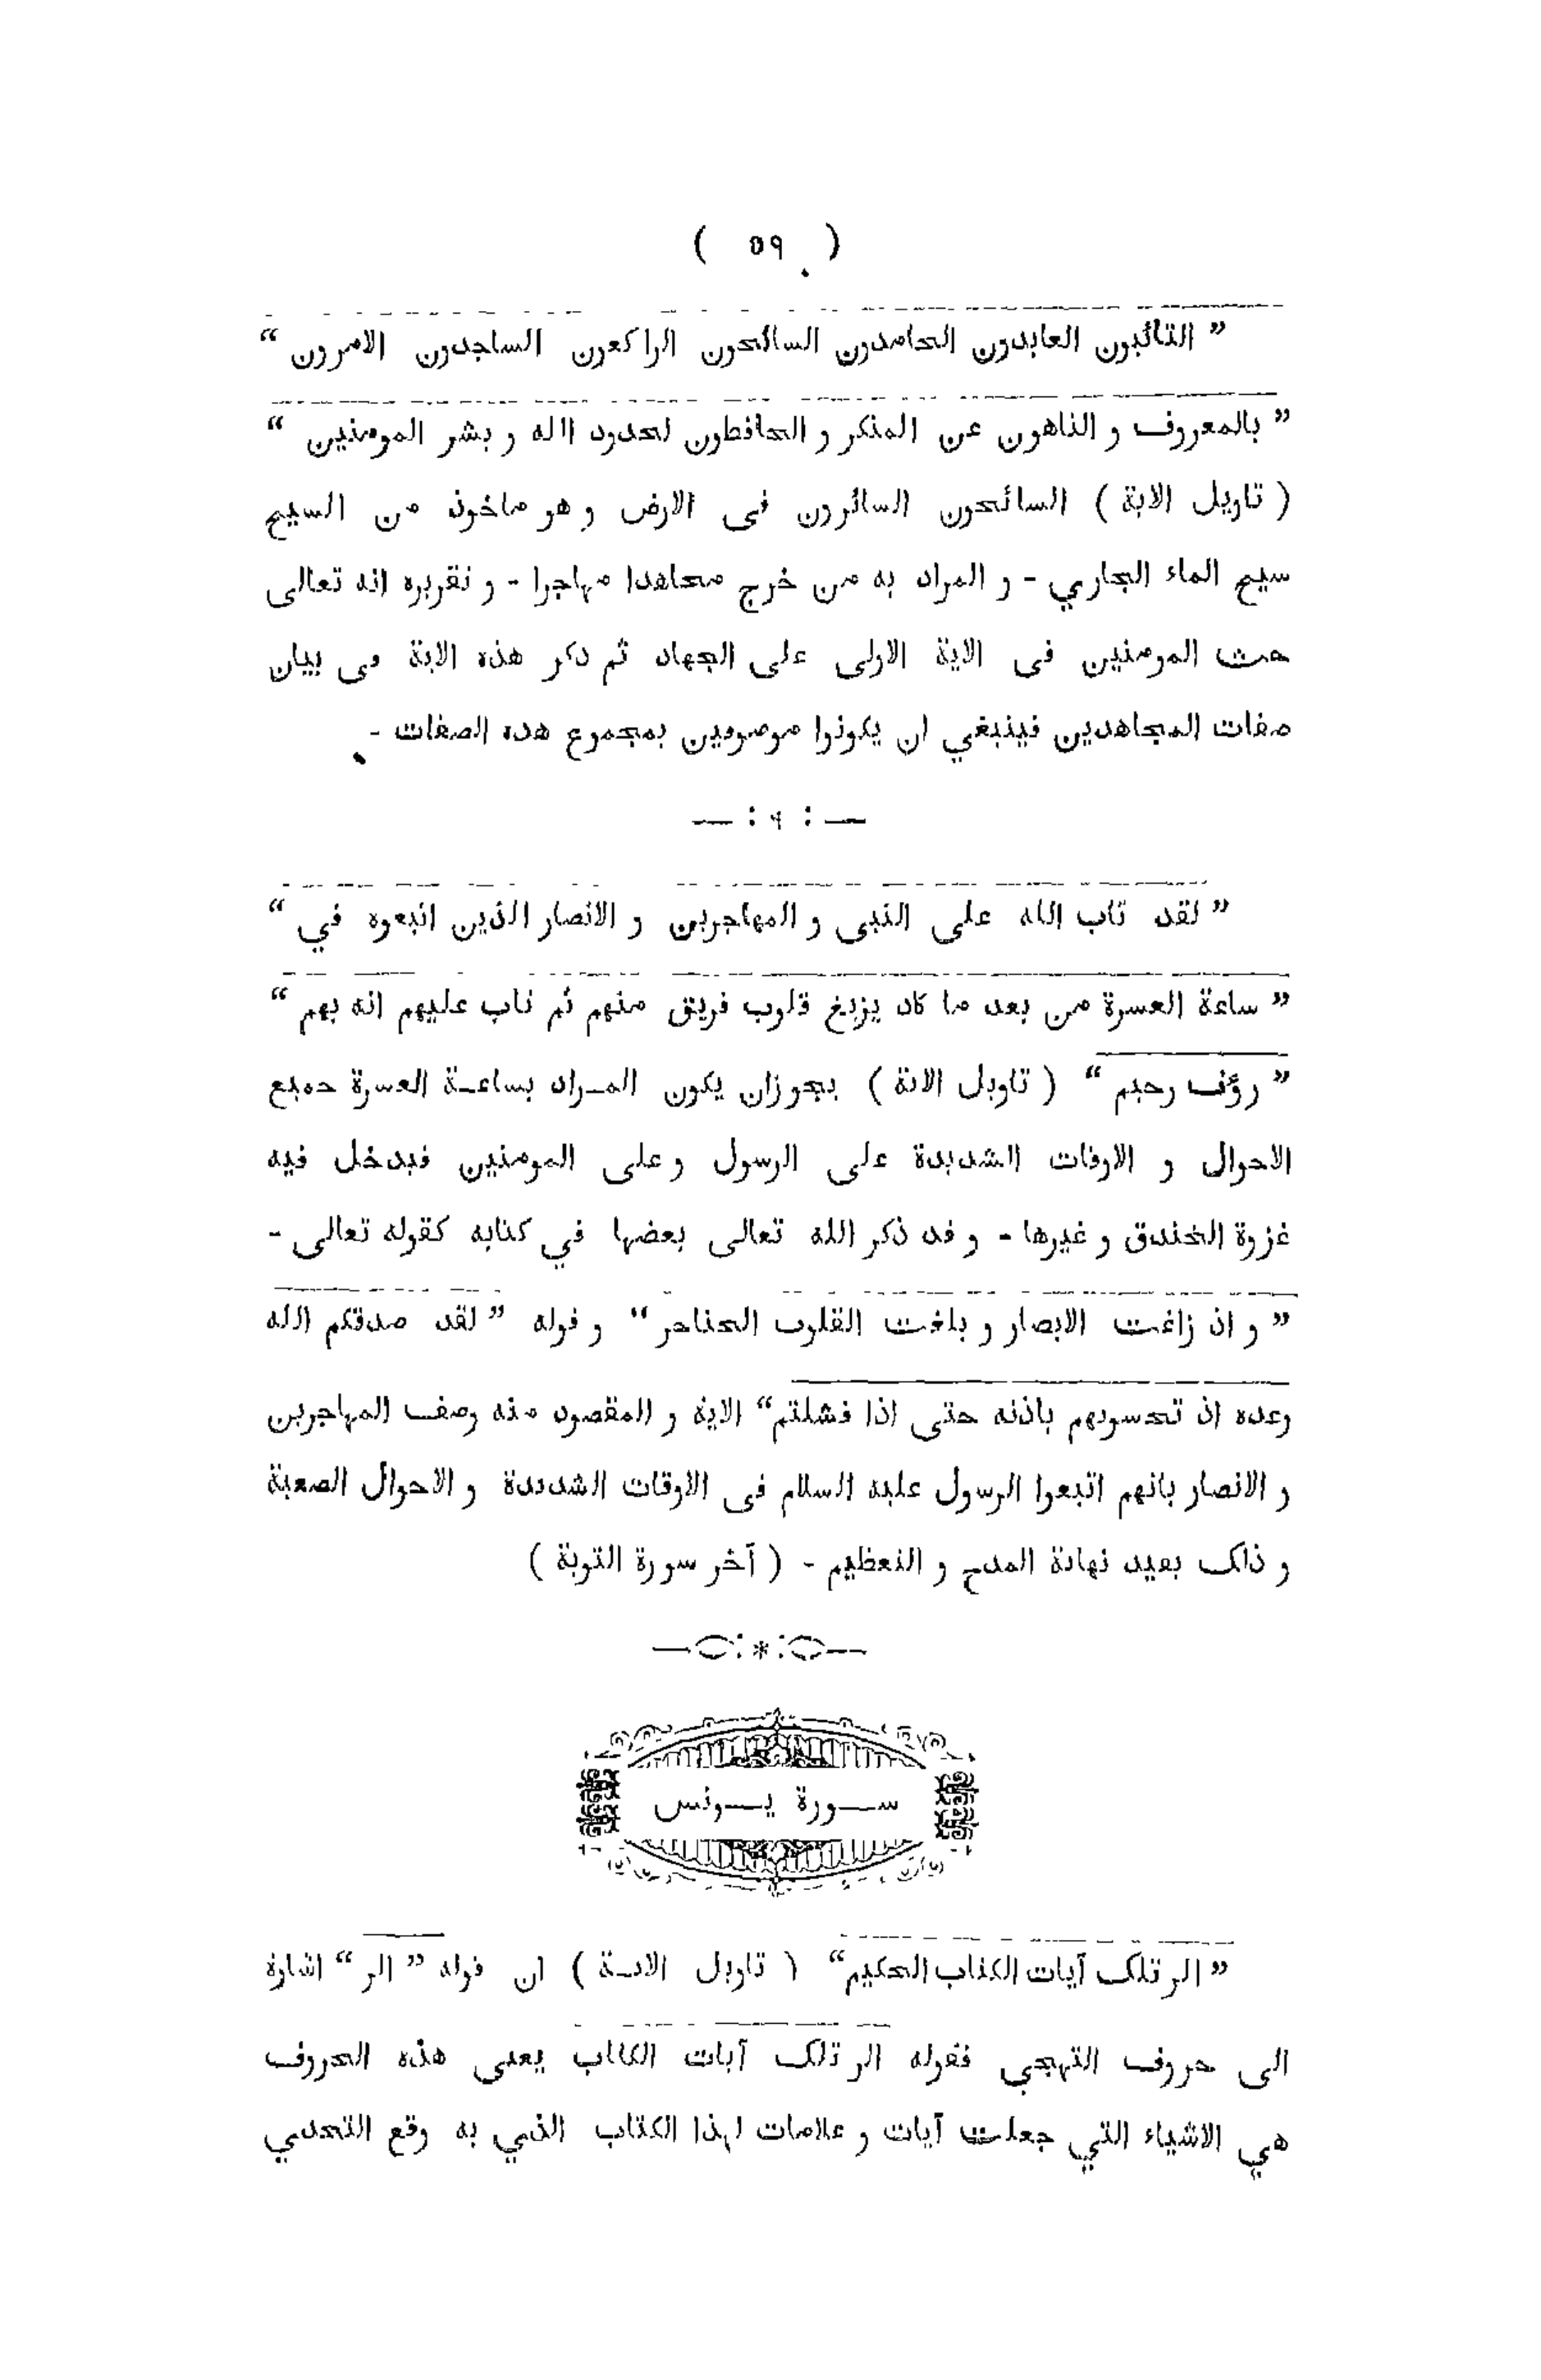 ( ٥٩ )
” التائبون العابدون الحامدون السائحون الراكعون الساجدون الامرون “
” بالمعروف و الناهون عن المنكر و الحافظون لحدود الله و بشر المومنين “
( تاويل الاية ) السائحون السائرون فى الارض و هو ماخوذ من السيح
سيح الماء الجاري - و المراد به من خرج مجاهدا مهاجرا - و تقريره انه تعالى
حث المومنين فى الاية الاولى على الجهاد ثم ذكر هذه الاية فى بيان
صفات المجاهدين فينبغي ان يكونوا موصوفين بمجموع هذه الصفات -
— : * : —
” لقد تاب الله على النبى و المهاجرين و الانصار الذين اتبعوه في “
” ساعة العسرة من بعد ما كاد يزيغ قلوب فريق منهم ثم تاب عليهم انه بهم “
” رؤف رحيم “ ( تاويل الاية ) يجوزان يكون المـراد بساعـة العسرة جميع
الاحوال و الاوقات الشديدة على الرسول و على المومنين فيدخل فيه
غزوة الخندق و غيرها - و قد ذكر الله تعالى بعضها في كتابه كقوله تعالى -
” و اذ زاغت الابصار و بلغت القلوب الحناجر “ و قوله ” لقد صدقكم الله
وعده اذ تحسونهم باذنه حتى اذا فشلتم “ الاية و المقصود منه وصف المهاجرين
و الانصار بانهم اتبعوا الرسول عليه السلام فى الاوقات الشديدة و الاحوال الصعبة
و ذلك يفيد نهاية المدح و التعظيم - ( آخر سورة التوبة )
—:*:—
ســورة يــونس
” الر تلك آيات الكتاب الحكيم “ ( تاويل الايـة ) ان قوله ” الر “ اشارة
الى حروف التهجي فقوله الر تلك آيات الكتاب يعنى هذه الحروف
هي الاشياء التي جعلت آيات و علامات لهذا الكتاب الذي به وقع التحدي